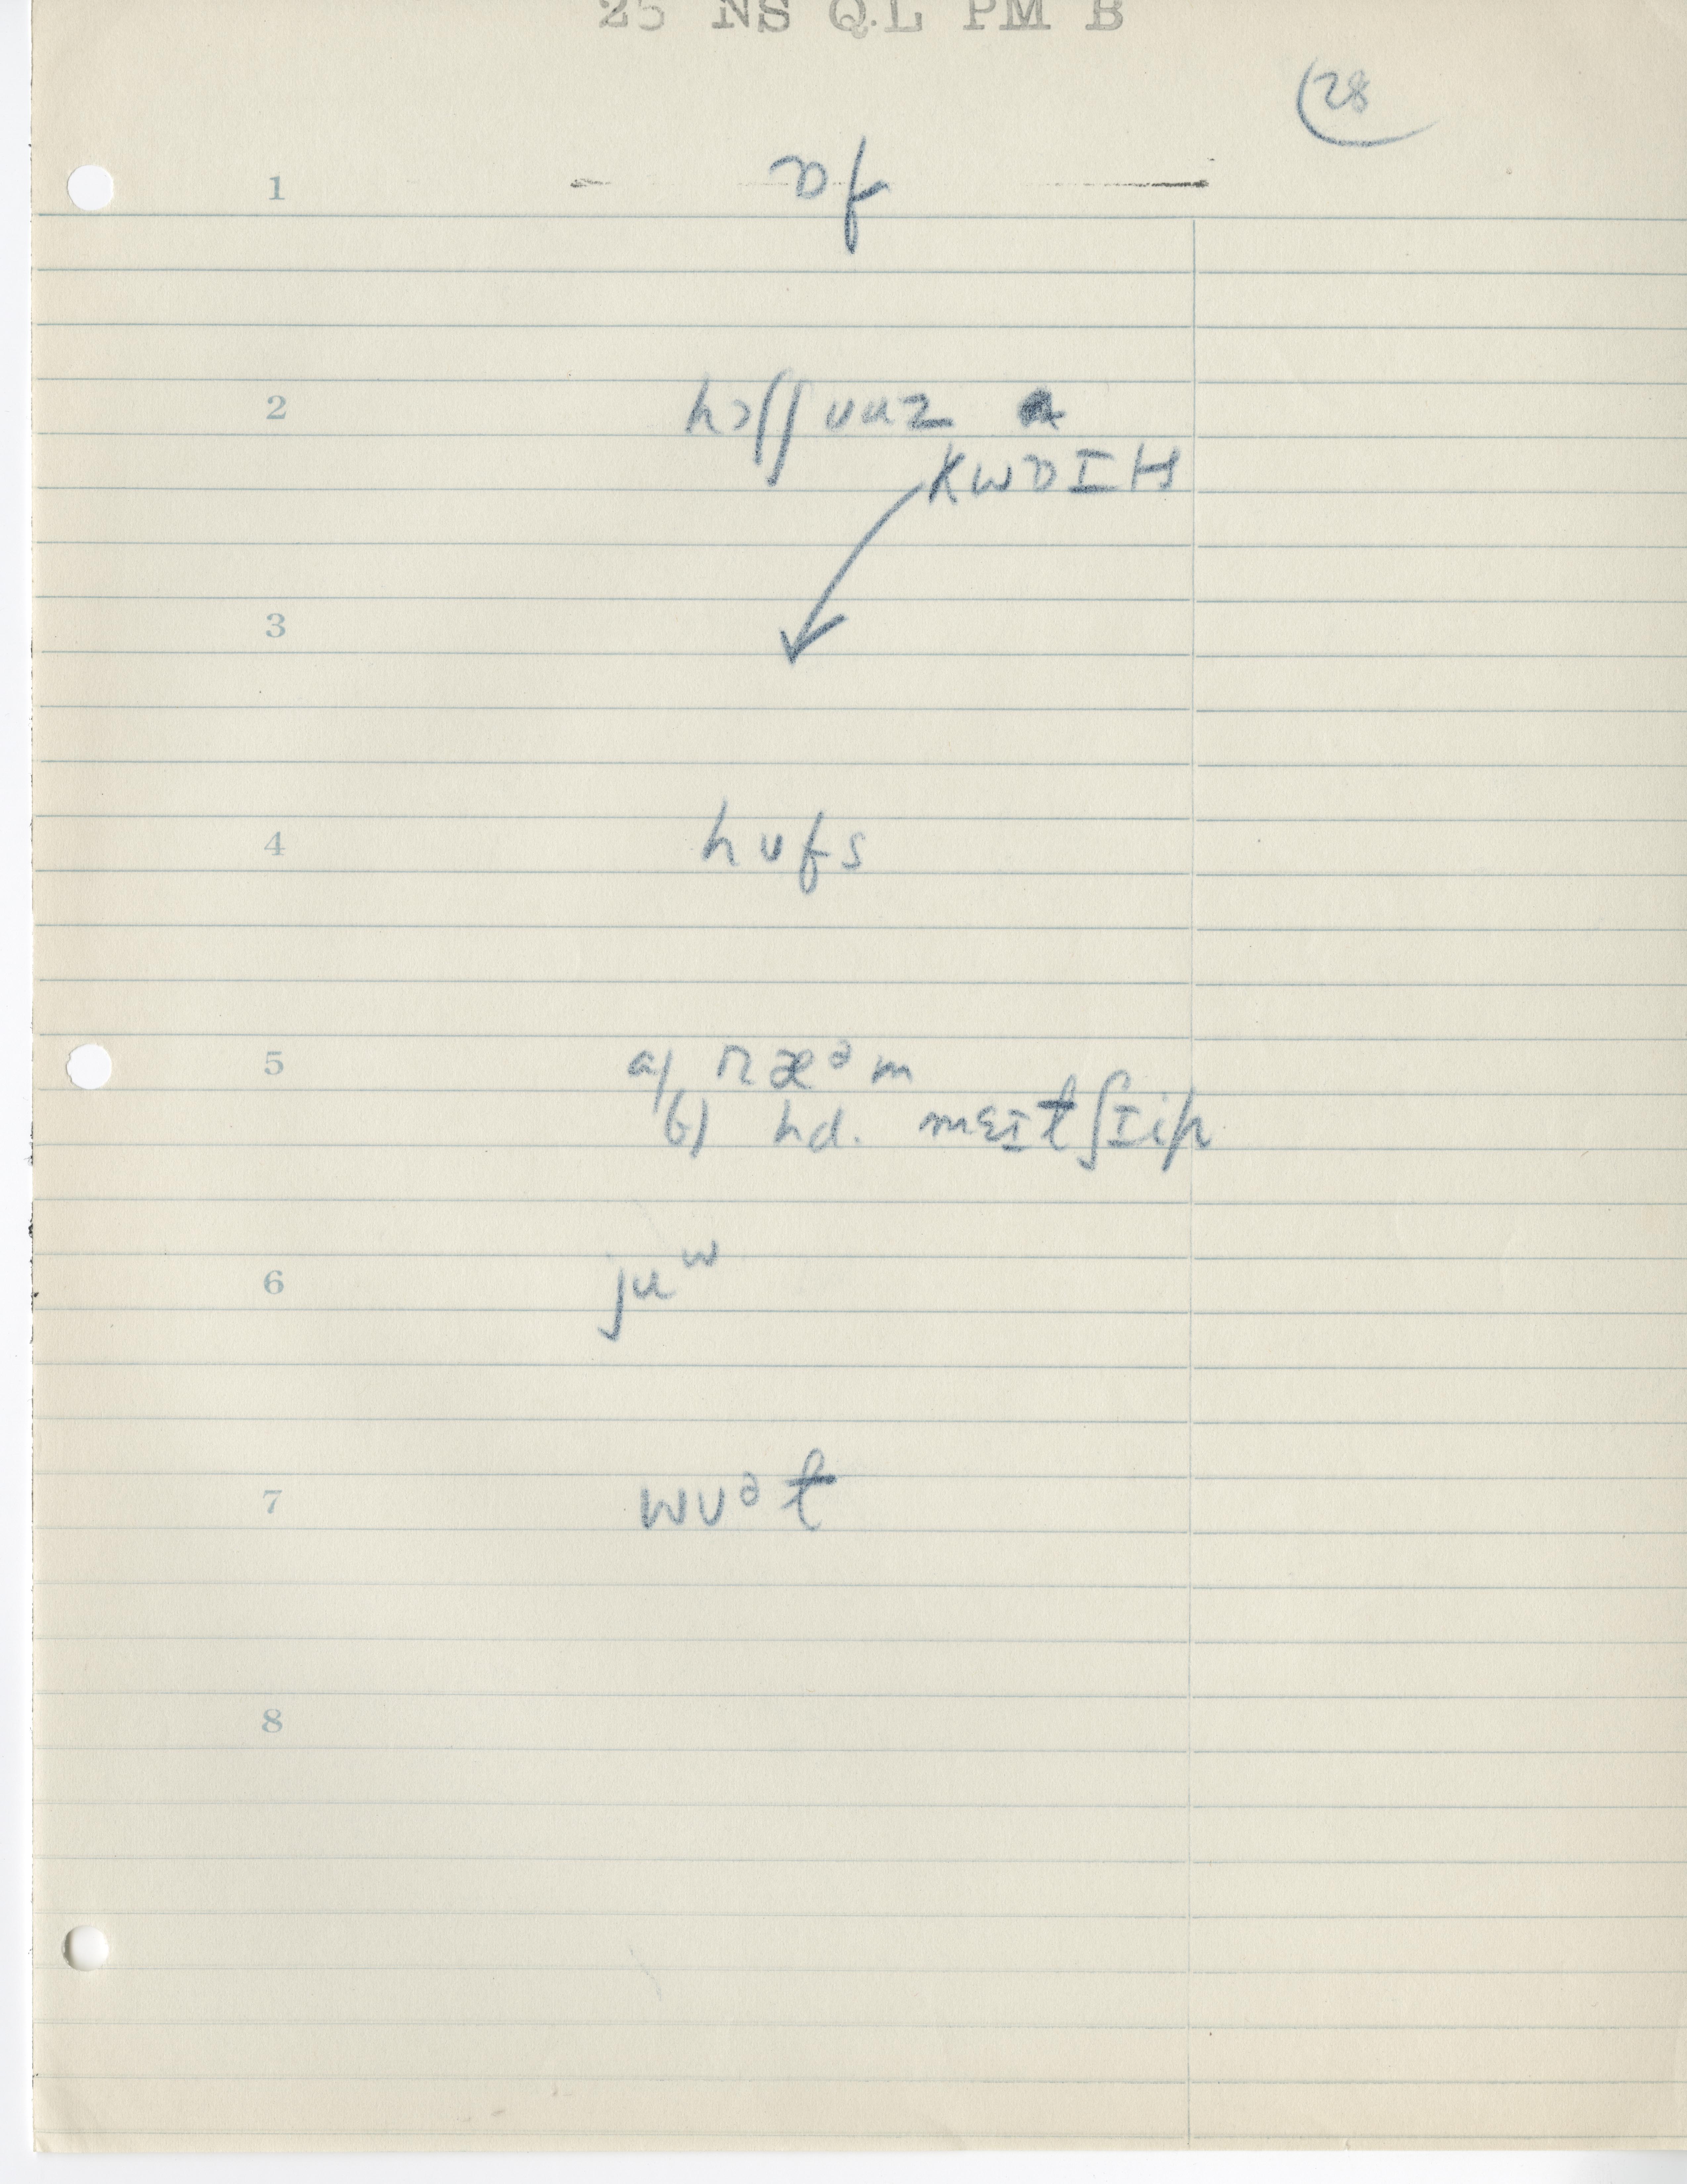 25 NS QL PM B
28
1 ɒf
2 hɔʃʃuuz
KWDIH
3
4 hʊfs
5 a) ræᵊm
b) hd. mɛɪtʃɪip
6 juʷ
7 wʊᵊt
8